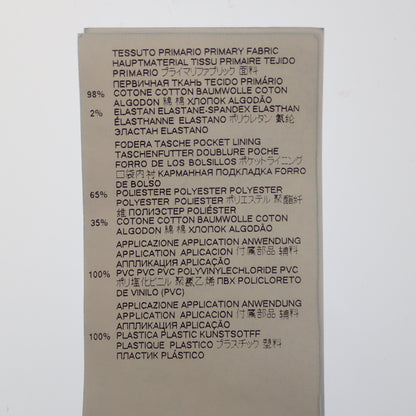 TESSUTO PRIMARIO PRIMARY FABRIC
HAUPTMATERIAL TISSU PRIMAIRE TEJIDO
PRIMARIO プライマリファブリック 面料
ПЕРВИЧНАЯ ТКАНЬ TECIDO PRIMÁRIO
98% COTONE COTTON BAUMWOLLE COTON
ALGODON 綿 棉 ХЛОПОК ALGODÃO
2% ELASTAN ELASTANE-SPANDEX ELASTHAN
ÉLASTHANNE ELASTANO ポリウレタン 氨纶
ЭЛАСТАН ELASTANO
FODERA TASCHE POCKET LINING
TASCHENFUTTER DOUBLURE POCHE
FORRO DE LOS BOLSILLOS ポケットライニング
口袋内衬 КАРМАННАЯ ПОДКЛАДКА FORRO
DE BOLSO
65% POLIESTERE POLYESTER POLYESTER
POLYESTER POLIESTER ポリエステル 聚酯纤
维 ПОЛИЭСТЕР POLIÉSTER
35% COTONE COTTON BAUMWOLLE COTON
ALGODON 綿 棉 ХЛОПОК ALGODÃO
APPLICAZIONE APPLICATION ANWENDUNG
APPLICATION APLICACION 付属部品 辅料
АППЛИКАЦИЯ APLICAÇÃO
100% PVC PVC PVC POLYVINYLECHLORIDE PVC
ポリ塩化ビニル 聚氯乙烯 ПВХ POLICLORETO
DE VINILO (PVC)
APPLICAZIONE APPLICATION ANWENDUNG
APPLICATION APLICACION 付属部品 辅料
АППЛИКАЦИЯ APLICAÇÃO
100% PLASTICA PLASTIC KUNSTSOTFF
PLASTIQUE PLASTICO プラスチック 塑料
ПЛАСТИК PLÁSTICO